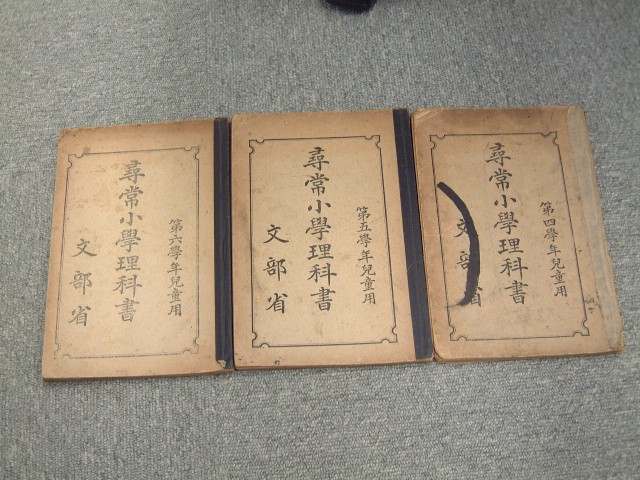 尋常小學理科書
第六學年兒童用
文部省
尋常小學理科書
第五學年兒童用
文部省
尋常小學理科書
第四學年兒童用
文部省